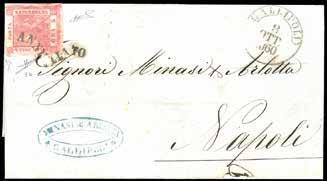 ANNULLATO
GALLIPOLI
8
OTT
860
Signori Minasi & Arlotta
Napoli
GALLIPOLI